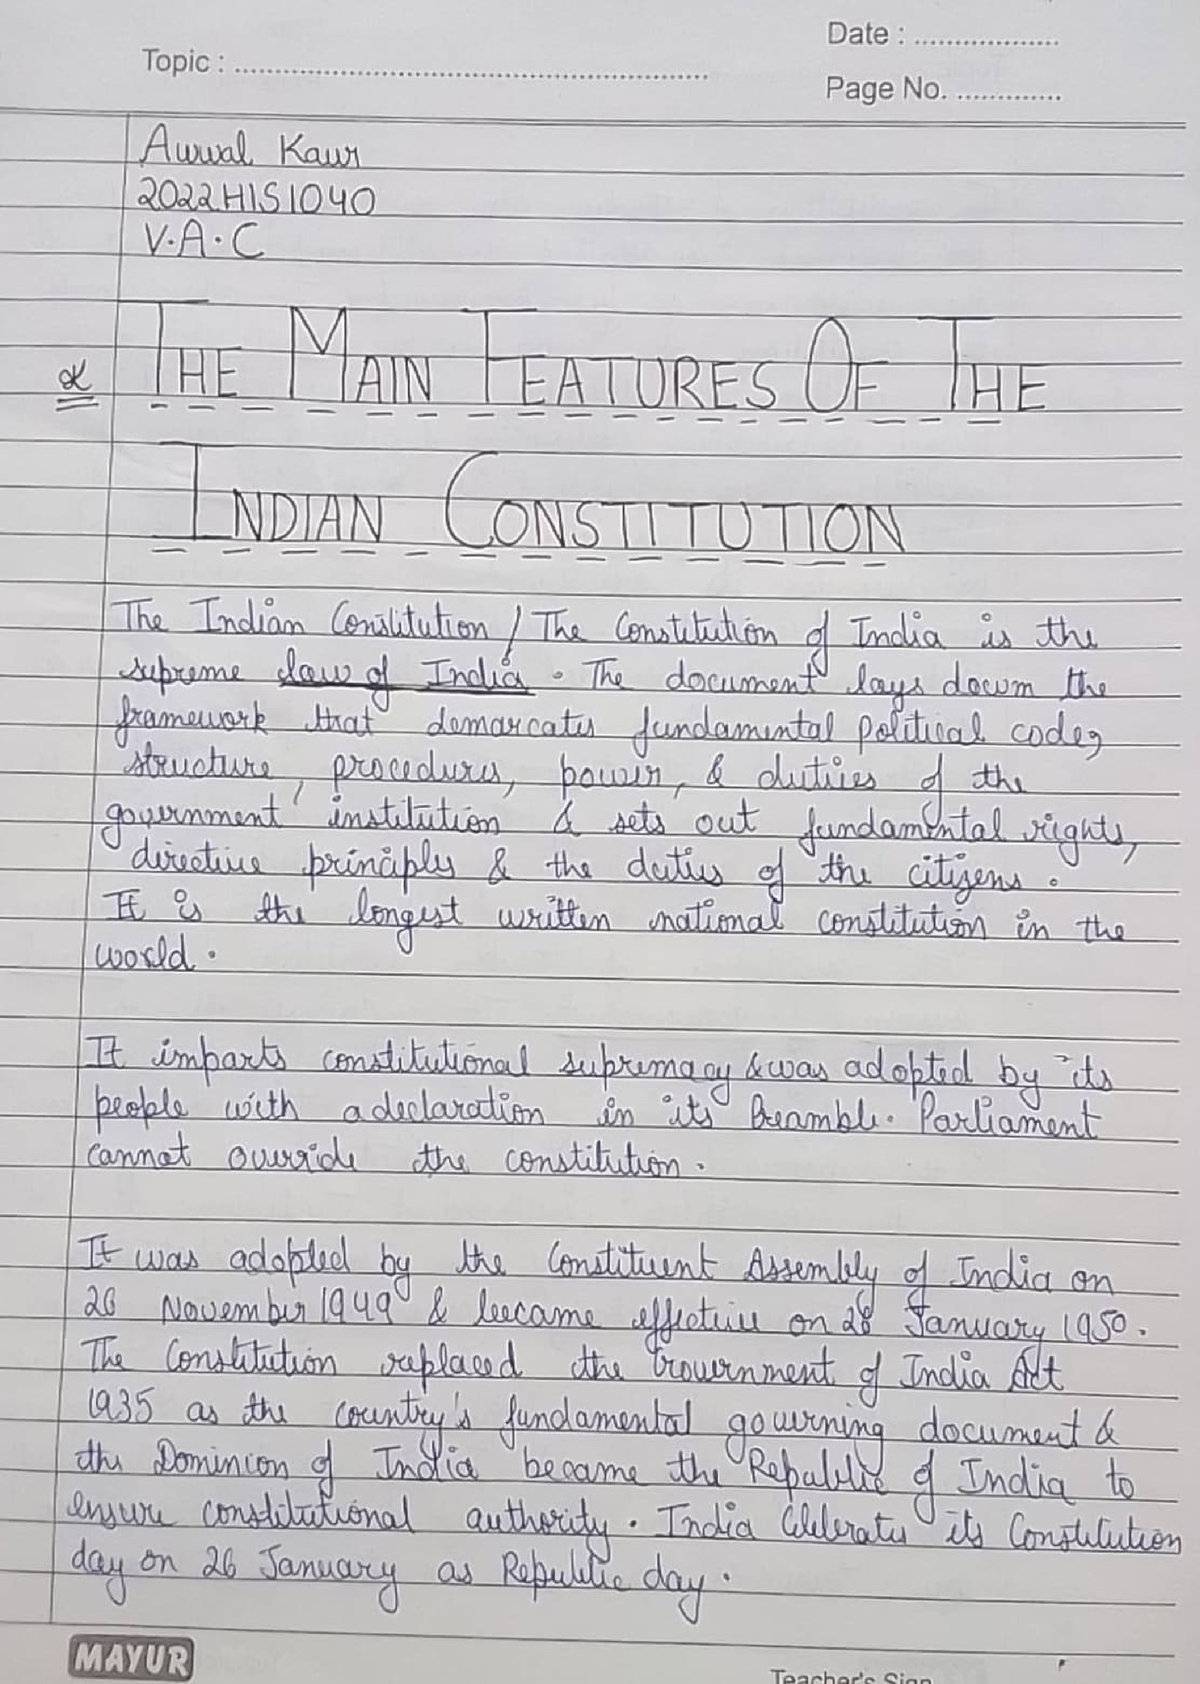 Date : ..................
Topic : ..........................................................
Page No. .............
Awwal Kaur
2022HIS1040
V.A.C
THE MAIN FEATURES OF THE
INDIAN CONSTITUTION
The Indian Constitution / The Constitution of India is the
supreme law of India. The document lays down the
framework that demarcates fundamental political code,
structure, procedures, power, & duties of the
government institution & sets out fundamental rights,
directive principles & the duties of the citizens.
It is the longest written national constitution in the
world.
It imparts constitutional supremacy & was adopted by its
people with a declaration in its Preamble. Parliament
cannot override the constitution.
It was adopted by the Constituent Assembly of India on
26 November 1949 & became effective on 26 January 1950.
The Constitution replaced the Government of India Act
1935 as the country's fundamental governing document &
the Dominion of India became the Republic of India to
ensure constitutional authority. India Celebrates its Constitution
day on 26 January as Republic day.
MAYUR
Teacher's Sign